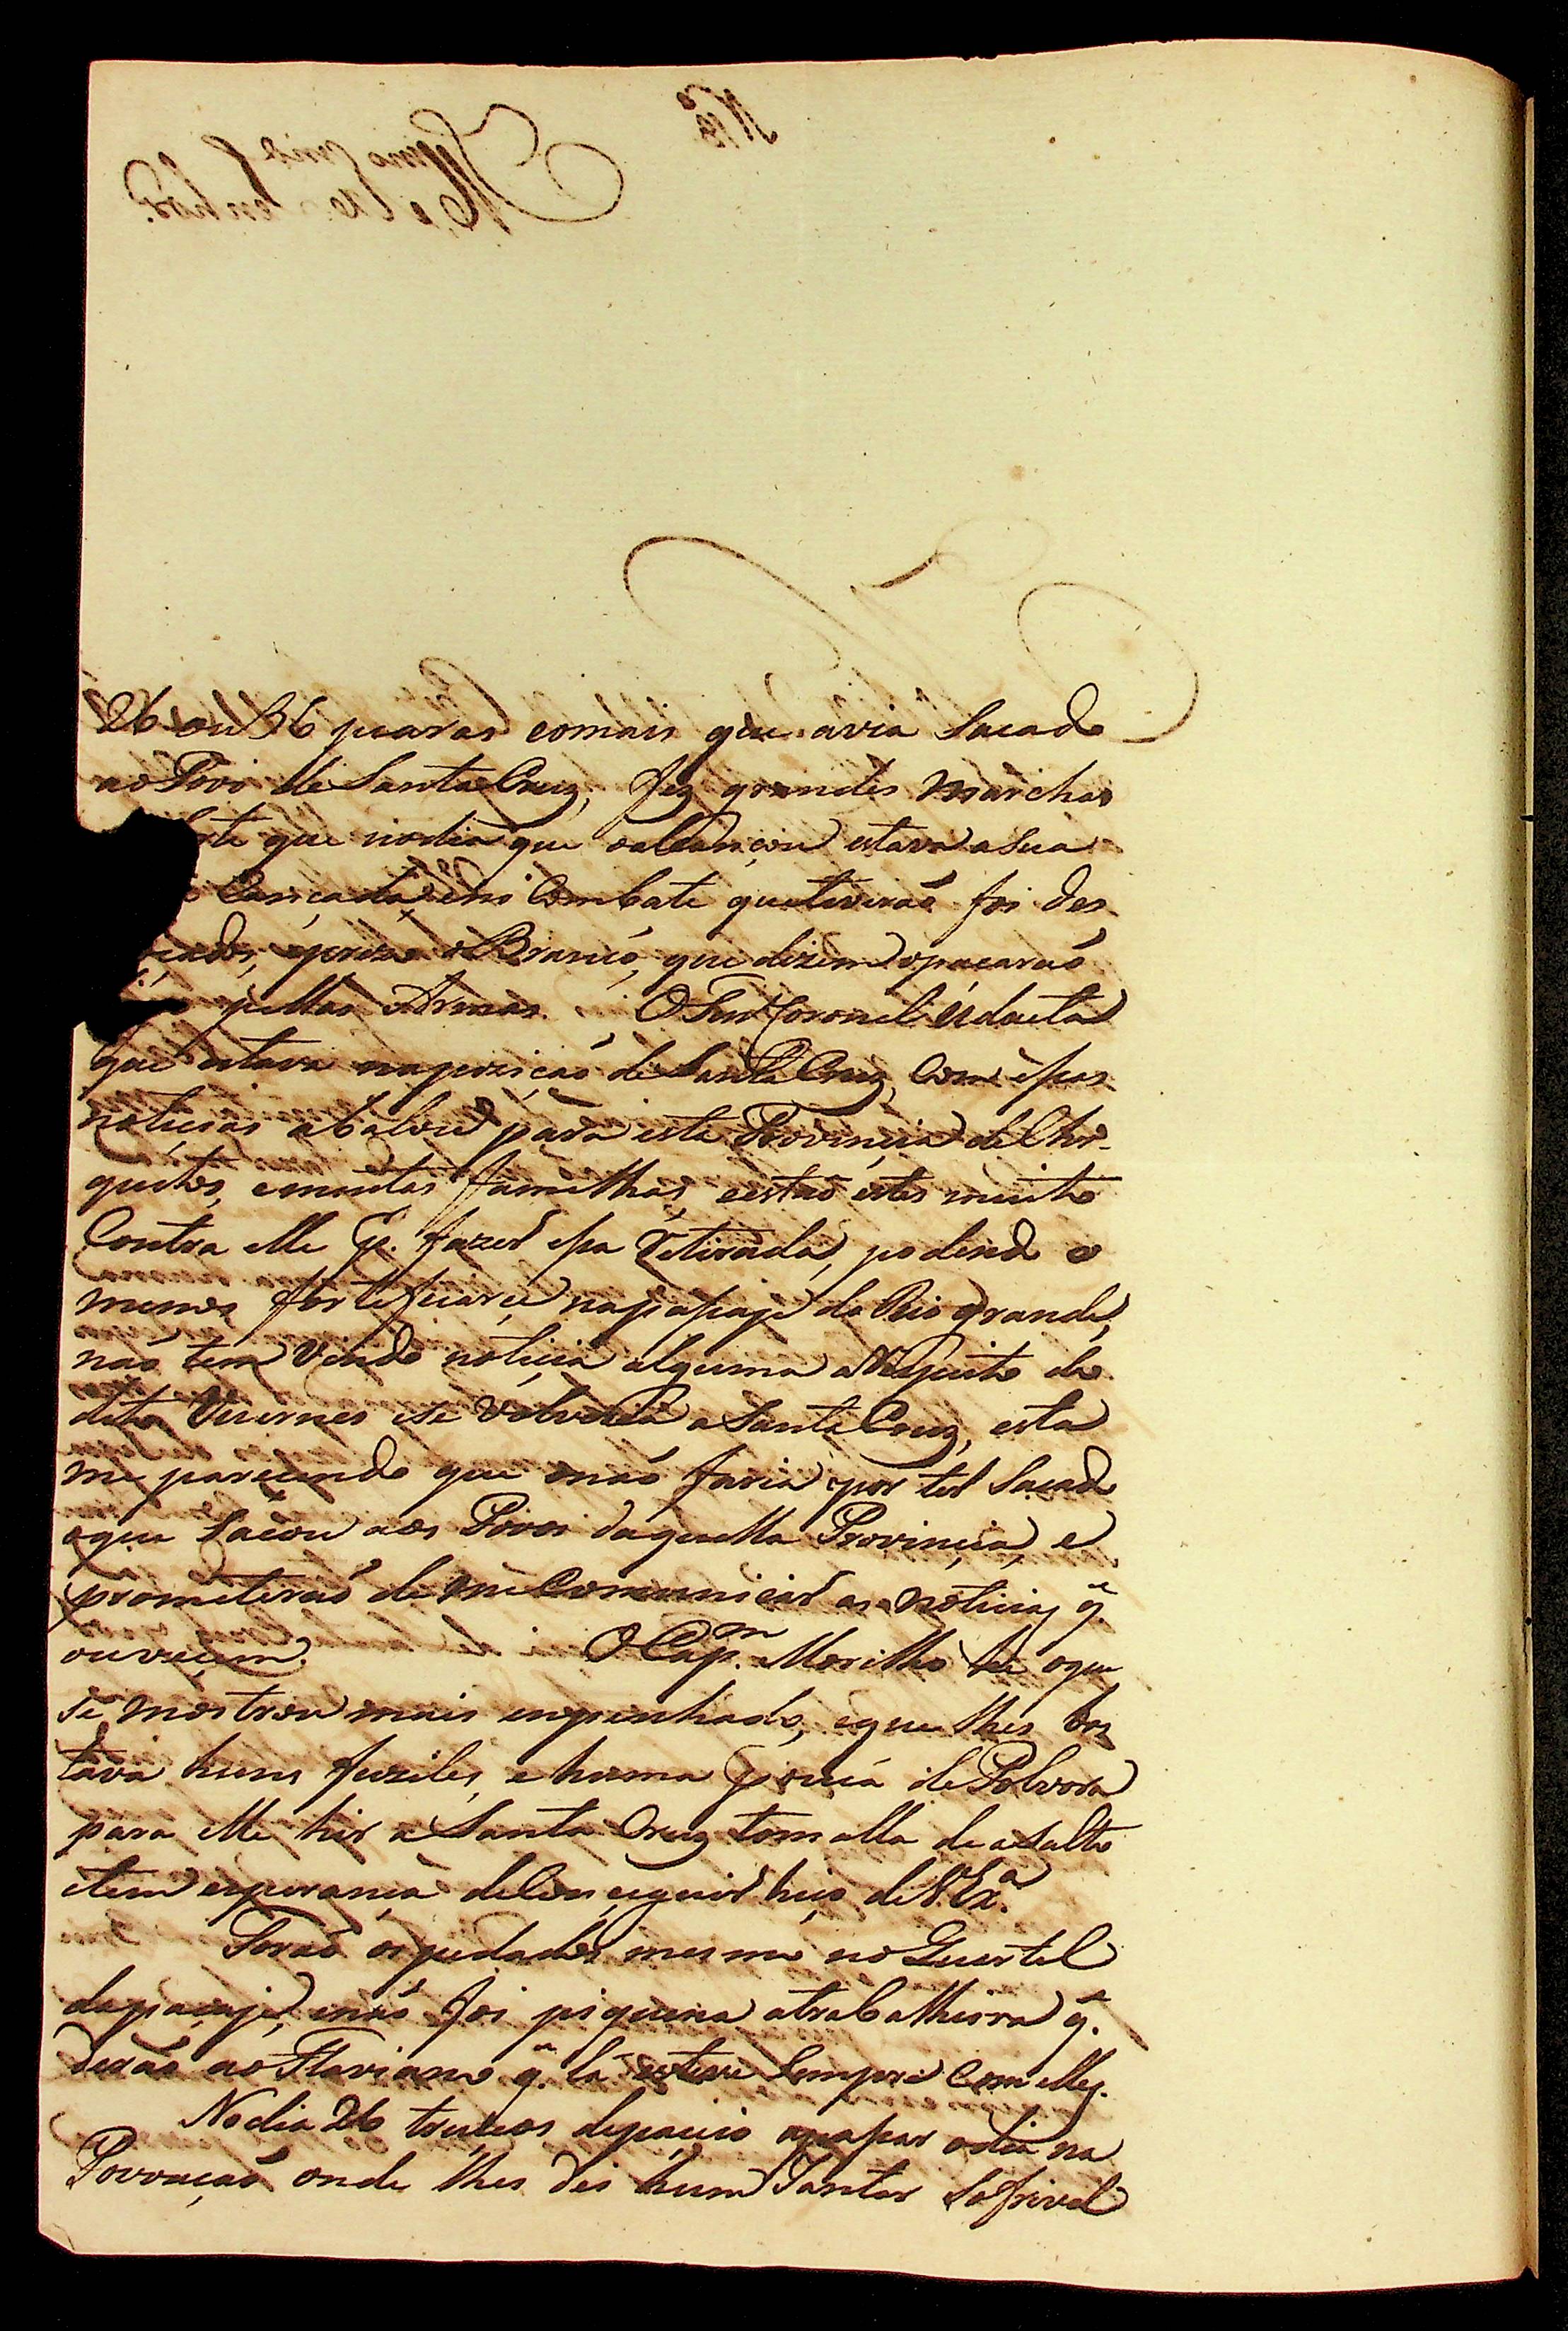 26 ou 36 praças comais que avia Sacado
ao Povo de Santa Cruz, fez grandes marchas
que nodia que oalcançou estava asua
Cançada, eno Combate que tiverão foi der
cado, eprezo o Brancó, que dizem opaçaraó
pellas Armas. O Ten.e Coronel Udaeta
que estava naposiçaó de Santa Cruz, Com eſsas
noticias abalou para esta Provincia de Chi-
quitos, emuitas familhas, eestaó estes muito
Contra elle p.r fazer eſsa retirada, podendo o
menos fortificarçe napaſsaje do Rio grande,
naó tem vindo noticia alguma arespeito do
dito e se volveria a Santa Cruz, esta
me parecendo que onaó faria por ter Sacado
oque Sacou aos Povos daquella Provincia, e
prometeraó de me Comunicar as noticias q̃
ouveçem. O Cap.m Morilho he oque
se mostrou mais empenhado, eque lhes bas
tava huns fuziles, e huma pouca de Polvora
para elle hir a Santa Cruz tomalla de asalto
etem esperança de Conçeguir hiço de V. Ex.a
Foraó ospedados mesmo no Quartel
dapaçaje, enaó foi piquena atrabalheira q̃.
deraó ao Flaviano q̃. lá esteve Sempre Com elles.
Nodia 26 truçeos depaçeio apaſsar odia na
Povoaçaó onde lhes dei hum Jantar Sofrivel